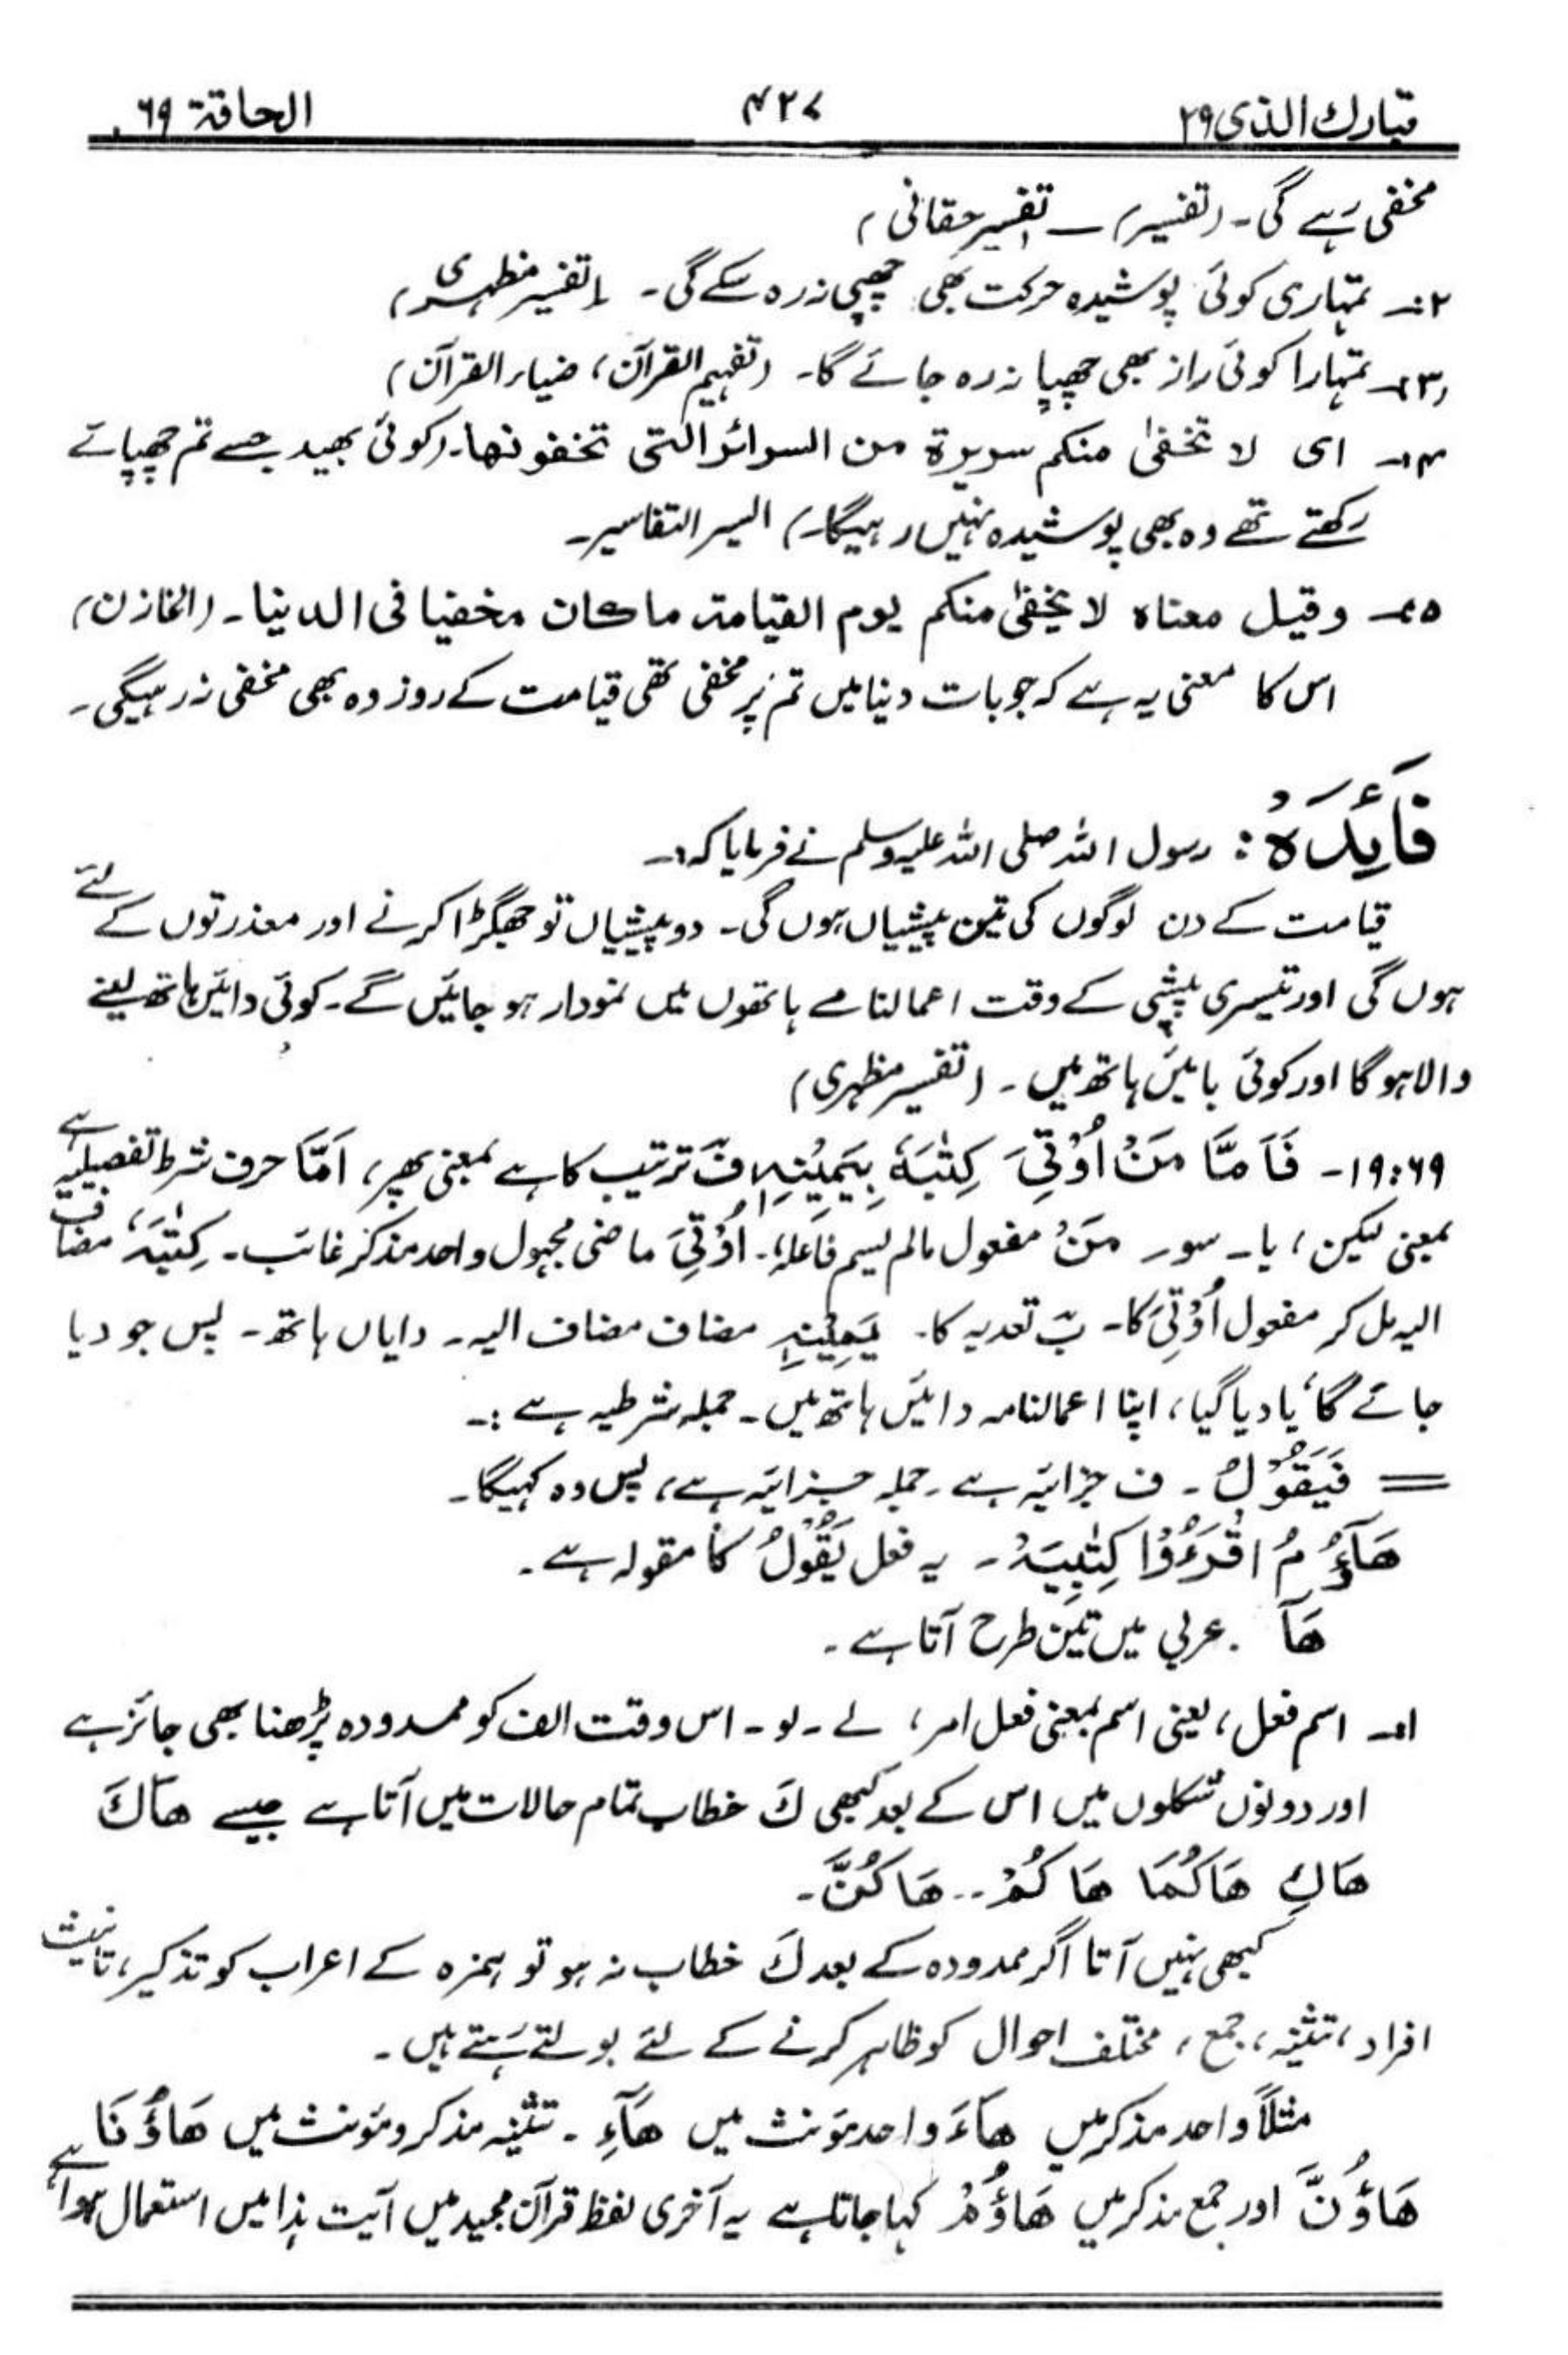 تبارك الذی ۲۹ ۴۲۷ الحاقة ۶۹
مخفی رہے گی۔ (تفسیر) ــ تفسیر حقانی)
۲:۔ تمہاری کوئی پوشیدہ حرکت بھی چھپی نہ رہ سکے گی۔ (تفسیر مظہری)
۳:۔ تمہارا کوئی راز بھی چھپا نہ رہ جائے گا۔ (تفہیم القرآن، ضیاء القرآن)
۴:۔ ای لا تخفیٰ منکم سریرة من السرائر التی تخفونها۔ (کوئی بھید جسے تم چھپاتے
رکھتے تھے وہ بھی پوشیدہ نہیں رہیگا۔) الیسر التفاسیر۔
۵:۔ وقیل معناہ لا یخفیٰ منکم یوم القیامة ما کان مخفیا فی الدنیا۔ (الخازن)
اس کا معنی یہ ہے کہ جو بات دنیا میں تم پر مخفی تھی قیامت کے روز وہ بھی مخفی نہ رہیگی۔
فَائِدَہُ: رسول اللہ صلی اللہ علیہ وسلم نے فرمایا کہ:۔
قیامت کے دن لوگوں کی تین پیشیاں ہوں گی۔ دو پیشیاں تو جھگڑا کرنے اور معذرتوں کے لئے
ہوں گی اور تیسری پیشی کے وقت اعمالنامے ہاتھوں میں نمودار ہو جائیں گے۔ کوئی دائیں ہاتھ لینے
والا ہوگا اور کوئی بائیں ہاتھ میں۔ (تفسیر مظہری)
۱۹:۶۹۔ فَاَمَّا مَنْ اُوْتِیَ کِتٰبَهٗ بِیَمِیْنِهٖ فَ ترتیب کا ہے بمعنی پھر، اَمَّا حرف شرط تفصیلیہ ہے
بمعنی لیکن، یا۔ سور مَنْ مفعول مالم یسم فاعلہٗ۔ اُوْتِیَ ماضی مجہول واحد مذکر غائب۔ کِتٰبَہٗ، مضاف
الیہ مل کر مفعول اُوْتِیَ کا۔ بَ تعدیہ کا۔ یَمِیْنِهٖ مضاف مضاف الیہ۔ دایاں ہاتھ۔ پس جو دیا
جائے گا، یا دیا گیا، اپنا اعمالنامہ دائیں ہاتھ میں۔ جملہ شرطیہ ہے:۔
= فَیَقُوْلُ۔ ف جزائیہ ہے۔ جملہ جزائیہ ہے، پس وہ کہیگا۔
هَآؤُمُ اقْرَءُوْا کِتٰبِیَهْ۔ یہ فعل یَقُوْلُ کا مقولہ ہے۔
هَآ . عربی میں تین طرح آتا ہے۔
۱:۔ اسم فعل، یعنی اسم بمعنی فعل امر، لے۔ لو۔ اس وقت الف کو ممدودہ پڑھنا بھی جائز ہے
اور دونوں شکلوں میں اس کے بعد کبھی كَ خطاب تمام حالات میں آتا ہے جیسے هَاكَ
هَاكِ هَاكُمَا هَاكُمْ .. هَاكُنَّ۔
کبھی نہیں آتا اگر ممدودہ کے بعد كَ خطاب نہ ہو تو ہمزہ کے اعراب کو تذکیر، تانیث
افراد، تثنیہ، جمع، مختلف احوال کو ظاہر کرنے کے لئے بولتے رہتے ہیں۔
مثلاً واحد مذکر میں هَآءَ واحد مؤنث میں هَآءِ۔ تثنیہ مذکر و مؤنث میں هَاؤُنَا ہے
هَاؤُنَّ اور جمع مذکر میں هَاؤُمْ کہا جاتا ہے یہ آخری لفظ قرآن مجید میں آیت ہذا میں استعمال ہوا